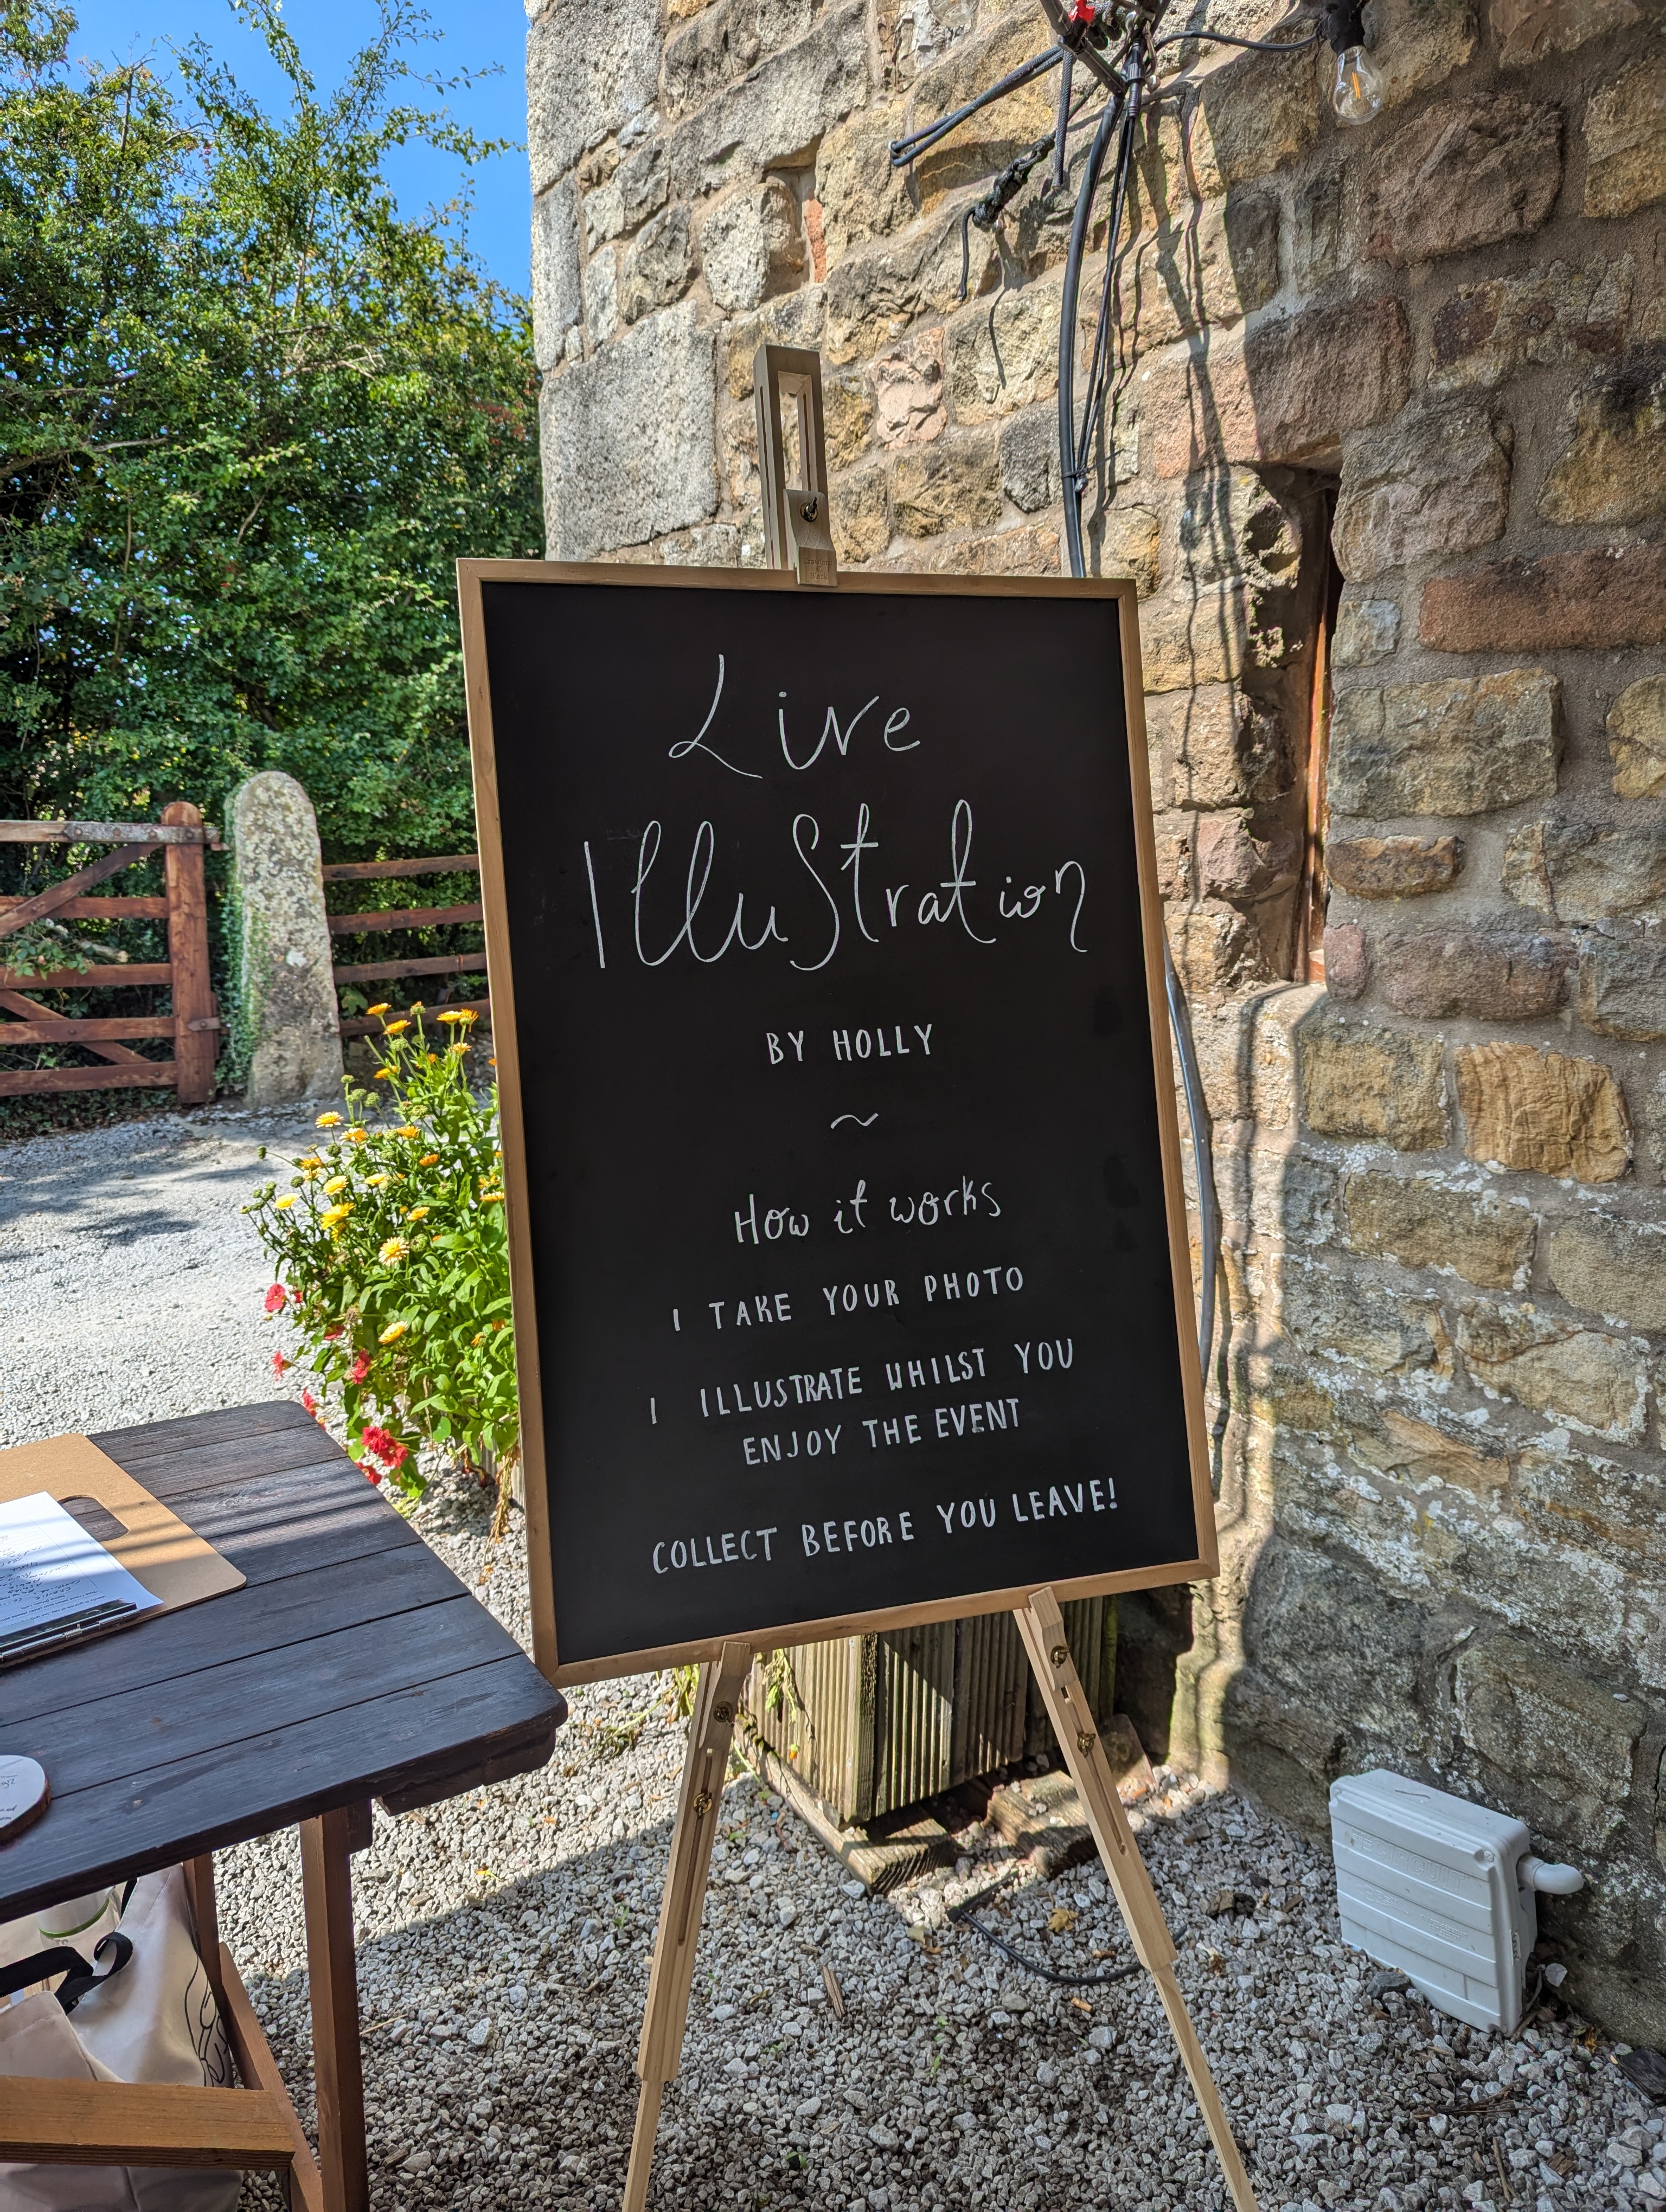 Live
Illustration
BY HOLLY
~
How it works
I TAKE YOUR PHOTO
I ILLUSTRATE WHILST YOU
ENJOY THE EVENT
COLLECT BEFORE YOU LEAVE!